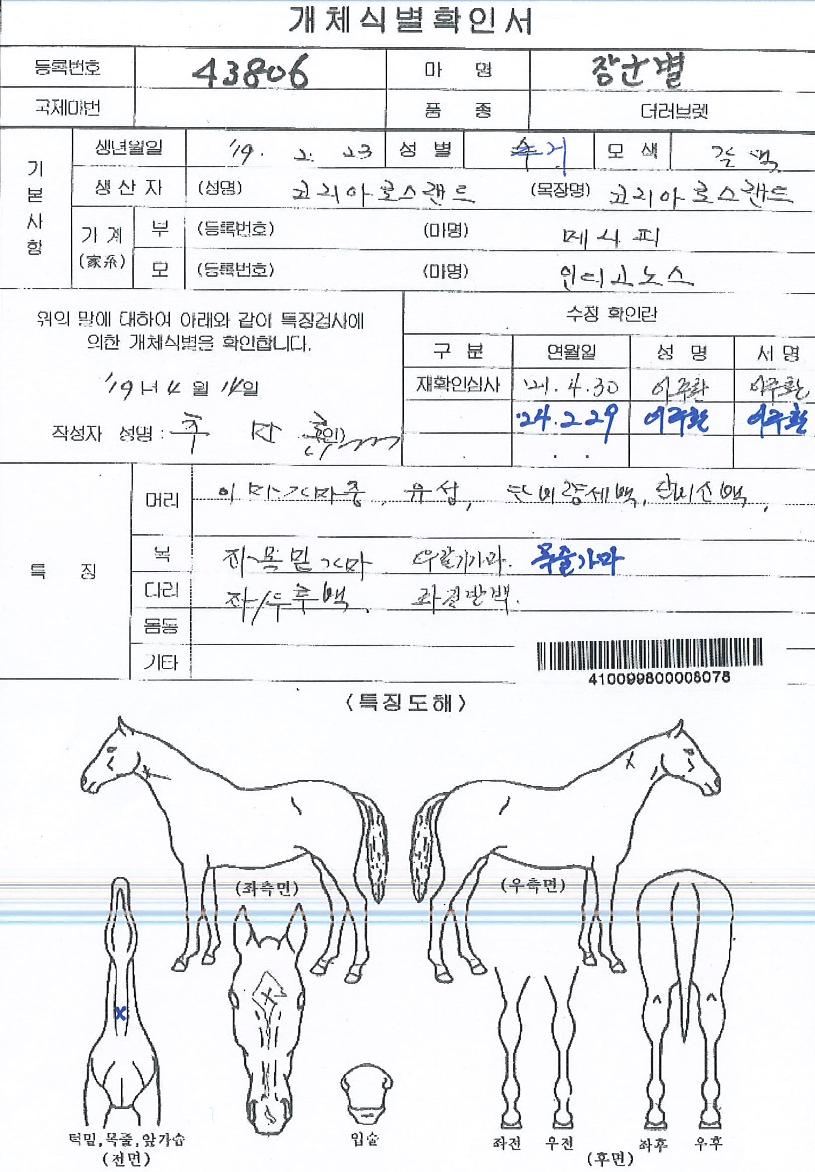 개체식별확인서
등록번호 43806 마 명 장군별
국제마번 품 종 더러브렛
기본사항
생년월일 '19. 2. 23 성 별 수 거 모 색 갈색
생 산 자 (성명) 코리아로스랜드 (목장명) 코리아로스랜드
기 계 (家系) 부 (등록번호) (마명) 메시피
모 (등록번호) (마명) 인디고노스
위의 말에 대하여 아래와 같이 특징검사에
의한 개체식별을 확인합니다.
'19 년 4 월 14일
작성자 성명 : (인)
수정 확인란
구 분 연월일 성 명 서 명
재확인심사 '21. 4. 30 이주환 이주환
'24. 2. 29 이주환 이주환
. .
특 징
머리 이마가마중, 유성,
목 좌목밑가마 목줄가마
다리 좌/우후백
몸통
기타
410099800008078
<특징도해>
(좌측면) (우측면)
턱밑,목줄,앞가슴
(전면)
입술
좌전 우전 좌후 우후
(후면)